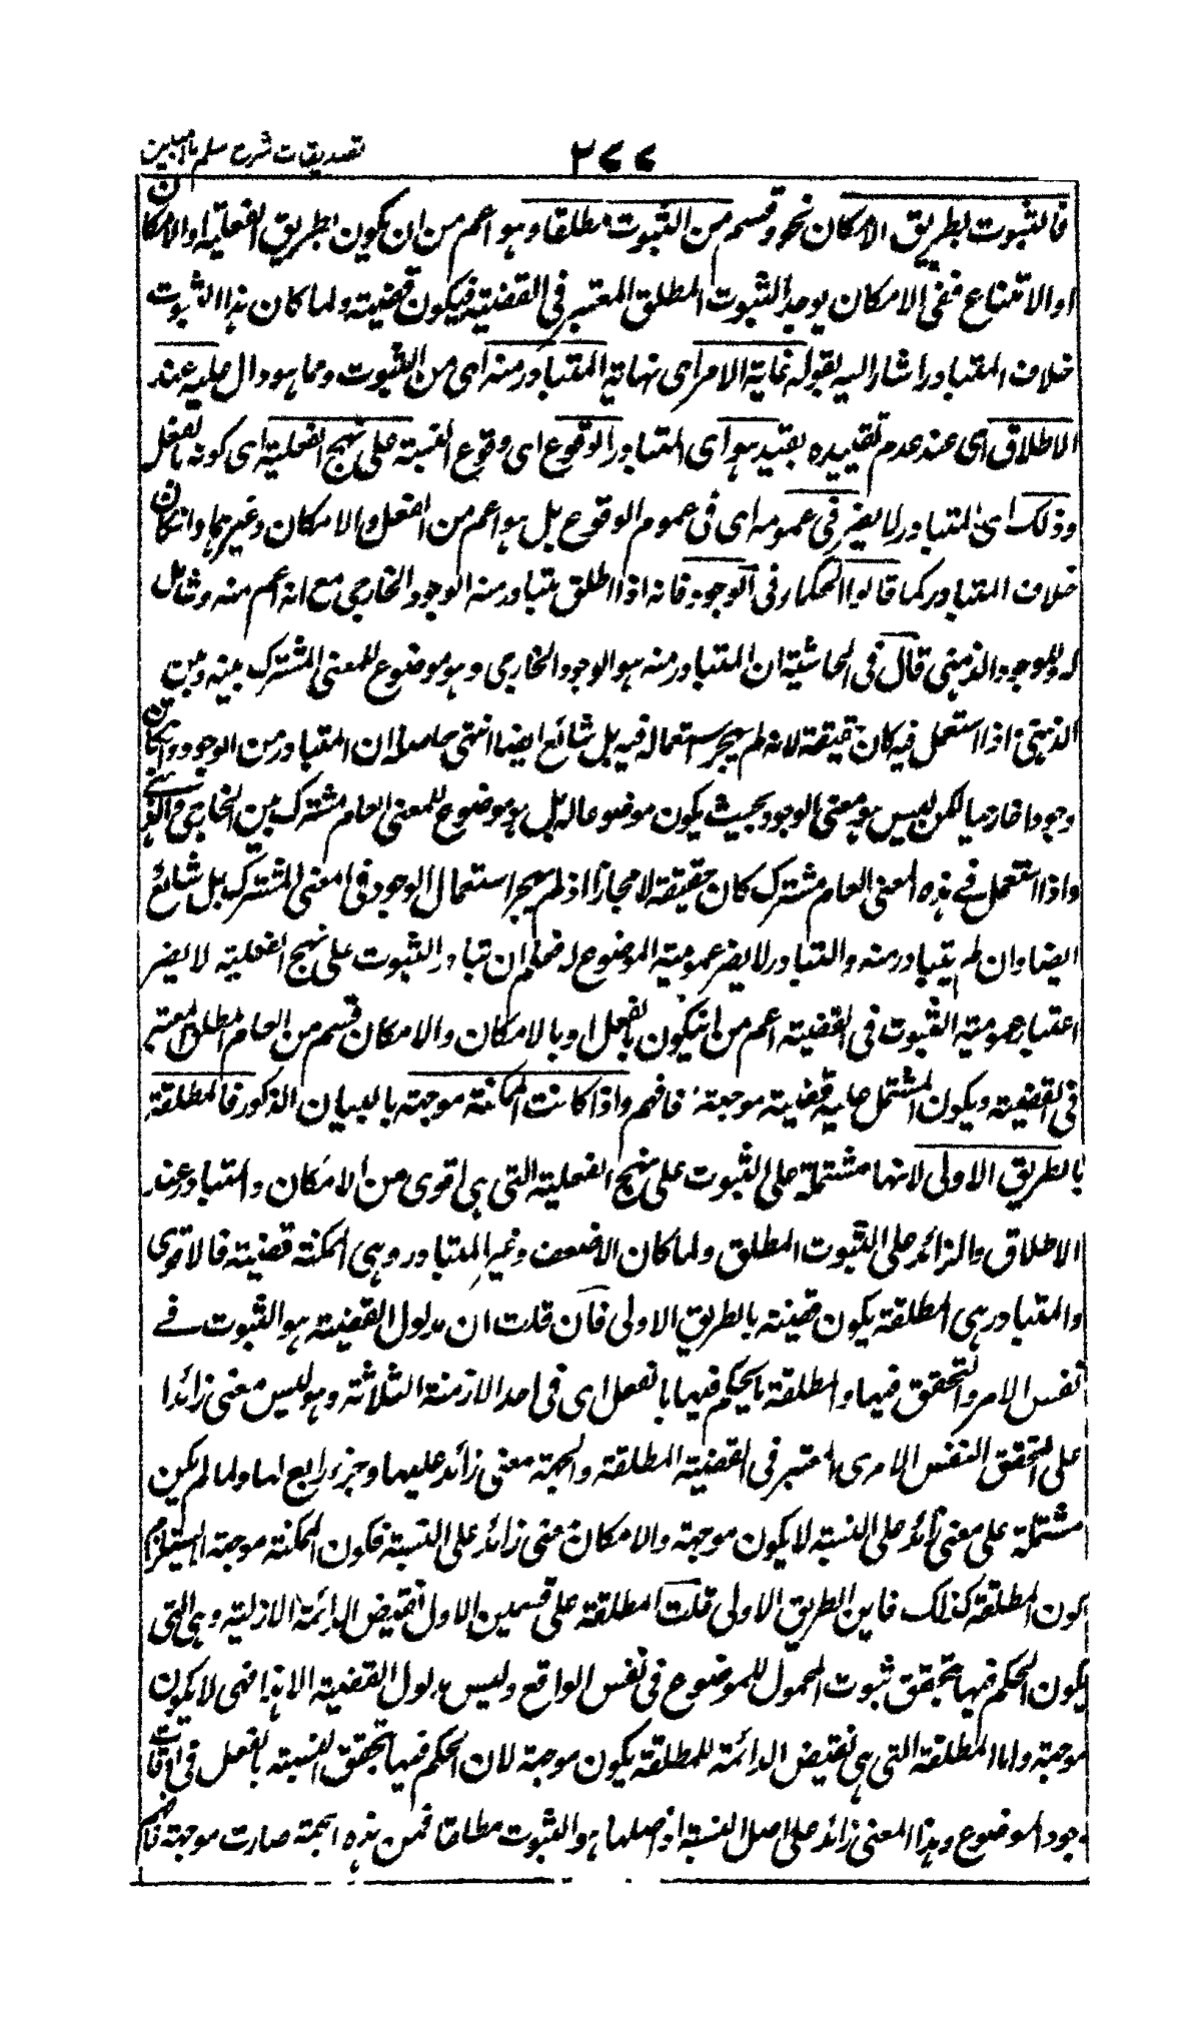 تصديقات شرح سلم ملا مبين
٢٧٧
فالثبوت بطريق الامكان نحو وقسم من الثبوت مطلقا وهو اعم من ان يكون بطريق الفعلية او الامكان
او الامتناع ففى الامكان يوجد الثبوت المطلق المعتبر فى القضية فيكون قضية ولما كان هذا الثبوت
خلاف المتبادر اشار اليه بقوله غاية الامر اى نهاية المتبادر منه اى من الثبوت ومما هو دال عليه عند
الاطلاق اى عند عدم تقييده بقيد هو اى المتبادر الوقوع اى وقوع النسبة على نهج الفعلية اى كونه بالفعل
وذلك اى المتبادر لا يضر فى عمومه اى فى عموم الوقوع بل هو اعم من الفعل والامكان وغيرهما وانكان
خلاف المتبادر كما قالوا الحكماء فى الوجود فانه اذا اطلق يتبادر منه الوجود الخارجى مع انه اعم منه وشامل
له وللوجود الذهنى قال فى الحاشية ان المتبادر منه هو الوجود الخارجى وهو موضوع للمعنى المشترك بينه وبين
الذهنى اذا استعمل فيه كان حقيقة لانه لم يهجر استعماله فيه بل شائع ايضا انتهى حاصله ان المتبادر من الوجود وانكان
وجودا خارجيا لكن ليس هو معنى الوجود بحيث يكون موضوعا له بل هو موضوع للمعنى العام مشترك بين الخارجى والذهنى
واذا استعمل فى هذه المعنى العام مشترك كان حقيقة لا مجازا اذ لم يهجر استعمال الوجود فى المعنى المشترك بل شائع
ايضا وان لم يتبادر منه والتبادر لا يضر عمومية الموضوع له فعلم ان تبادر الثبوت على نهج الفعلية لا يضر
اعتبار عمومية الثبوت فى القضية اعم من انيكون بالفعل او بالامكان والامكان قسم من العام المطلق المعتبر
فى القضية ويكون المشتمل عليه قضية موجهة فافهم واذا كانت الممكنة موجهة بالبيان المذكور فالمطلقة
بالطريق الاولى لانها مشتملة على الثبوت على نهج الفعلية التى هى اقوى من الامكان والمتبادر عند
الاطلاق والزائد على الثبوت المطلق ولما كان الاضعف وغير المتبادر وهى الممكنة قضية فالاقوى
والمتبادر هى المطلقة يكون قضية بالطريق الاولى فان قلت ان مدلول القضية هو الثبوت فى
نفس الامر والتحقق فيها والمطلقة ما يحكم فيها بالفعل اى فى احد الازمنة الثلاثة وهو ليس معنى زائدا
على التحقق النفس الامرى المعتبر فى القضية المطلقة والجهة معنى زائد عليها وجزء رابع لها ولما لم يكن
مشتملة على معنى زائد على النسبة لا يكون موجهة والامكان معنى زائد على النسبة فكون الممكنة موجهة لا يستلزم
كون المطلقة كذلك فاين الطريق الاولى قلت المطلقة على قسمين الاول نقيض الدائمة الازلية وهى التى
يكون الحكم فيها بتحقق ثبوت المحمول للموضوع فى نفس الواقع وليس مدلول القضية الا هذا فهى لا يكون
موجهة واما المطلقة التى هى نقيض الدائمة المطلقة يكون موجهة لان الحكم فيها بتحقق النسبة بالفعل فى اوقات
وجود الموضوع وهذا المعنى زائد على اصل النسبة اذ اصلها هو الثبوت مطلقا فمن هذه الجهة صارت موجهة